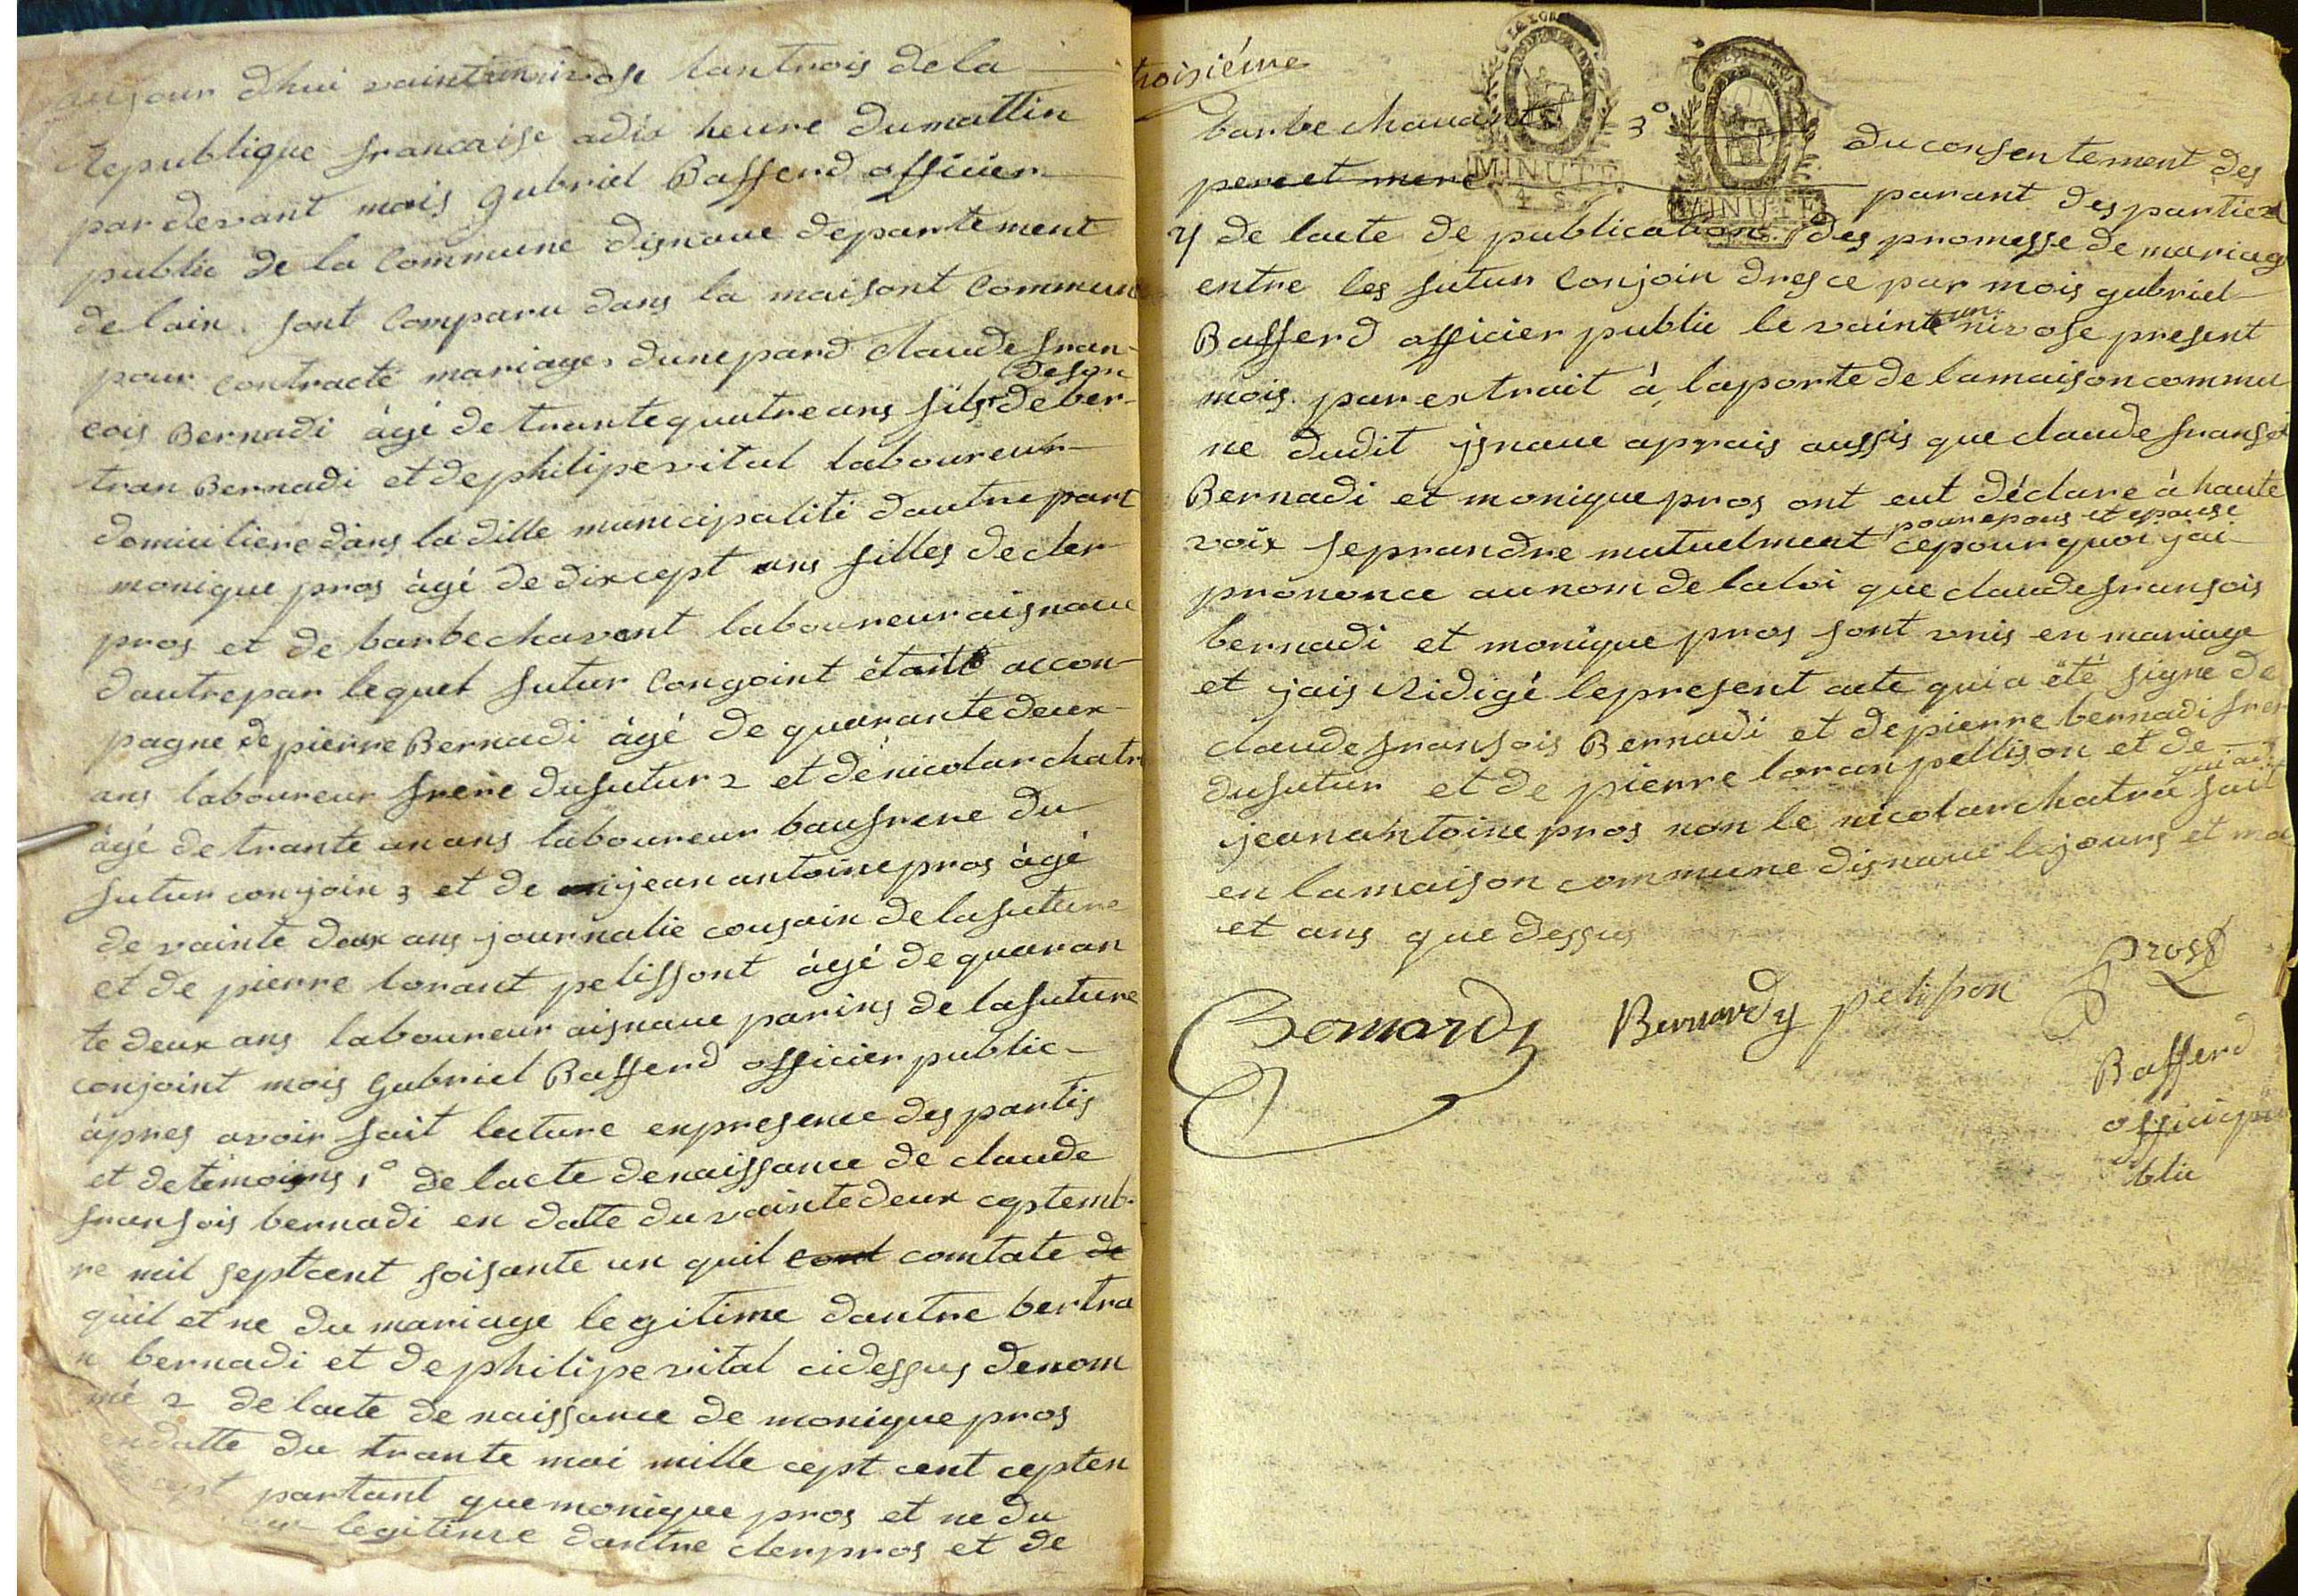 aujour dhui vaintun nivose lan trois de la
Republique francaise adix heure dumattin
par devant mois gabriel Bafferd officier
public de la Commune disnaue departement
de lain. sont Comparu dans la maisont Commune
pour contracté mariages dune pard claude fran-
cois Bernadi àgé de trante quatre ans fils de son de ber-
tran Bernadi et de philipe vital laboureur
domiciliere dans la ditte municipalité dautre part
monique pros àgé de dixcept ans filles de cler
pros et de barbe chavant laboureur aisnaue
dautre par lequel futur Congoint étaité accon-
pagne de pierre Bernadi àgé de quarante deux
ans laboureur frere du futur 2 et de nicolar chatr
àgé de trante un ans laboureur baufrere du
futur conjoin 3 et de jean antoine pros àgé
de vainte deux ans journalie cousain de la future
et de pierre lorant pelissont àgé de quaran
te deux ans laboureur aisnaue parins de la future
conjoint mois Gabriel Bafferd officier public
àpres avoir fait lecture en presence des partis
et de temoigns 1° de lacte de naissance de claude
fransois bernadi en datte du vainte deux ceptemb-
re mil septcent soisante un quil cont comtate de
quil et ne du mariage legitime dantre bertra
n bernadi et de philipe vital cidessus denom
mé 2 de lacte de naissance de monique pros
en datte du trante mai mille cept cent cepten
cept partant que monique pros et ne du
legitime dantre cler pros et de
troisiéme
barbe chauant 3° du consentement des
pere et mere parant des parties
MINUTE
4 S.
MINUTE
4 de lacte de publications des promesse de mariag
entre les futur Conjoin dresce par mois gabriel
Bafferd officier public le vainte un nivose present
mois par extrait à laporte de la maison commu
ne dudit jsnaue aprais aussis que claude fransoi
Bernadi et monique pros ont eut déclare à haute
voix se prandre mutuelment pour epous et epouse cepourquoi jai
prononce au nom de la loi que claude fransois
bernadi et monique pros sont unis en mariage
et jais Ridigé le present acte qui a été signe de
claude fransois Bernadi et de pierre bernadi frer
du futur et de pierre loran pellison et de
jean antoine pros non le nicolar chatra fait
en la maison commune disnaue le jours et moi
et ans que dessus
Bernardy Bernardy pelisson Pross
Bafferd
officie pu
blic